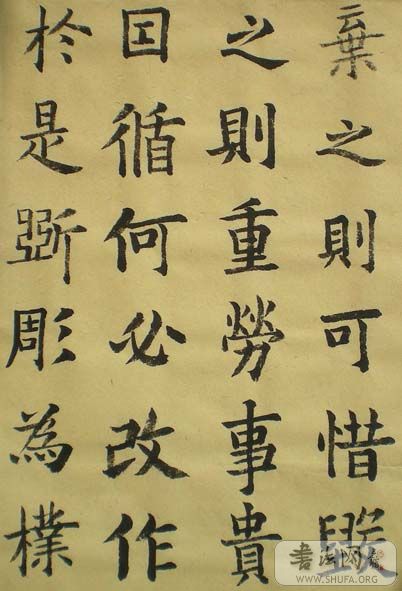 棄之則可惜毀
之則重勞事貴
囙循何必改作
於是斲彫為樸
WWW.SHUFA.ORG